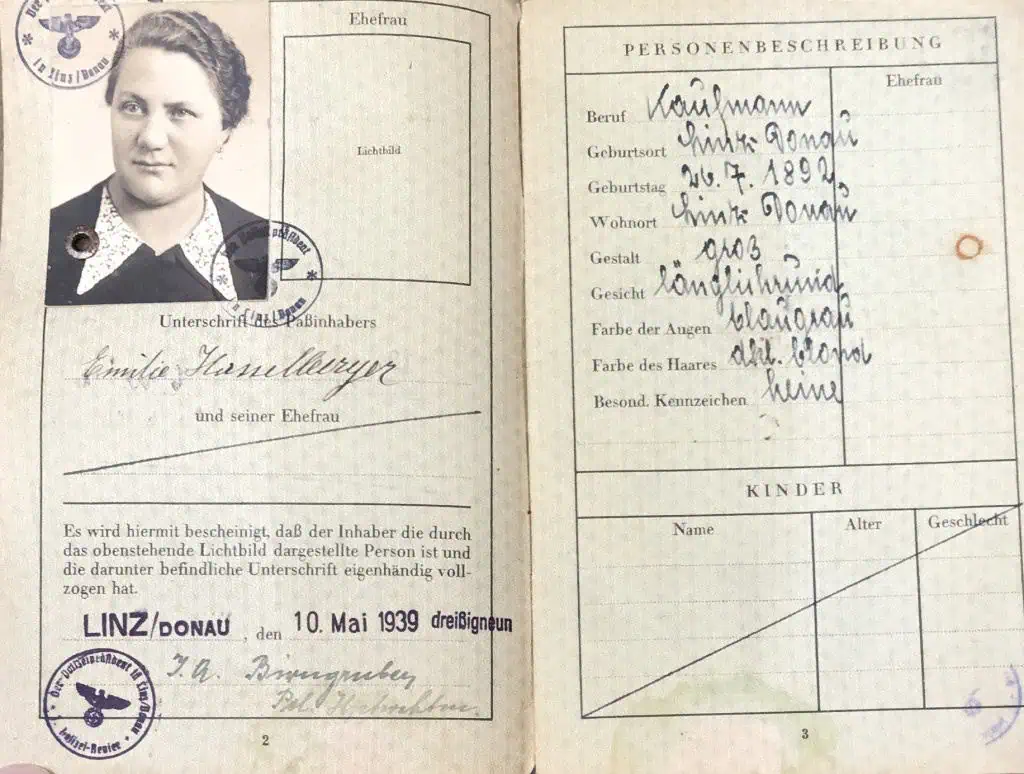 Ehefrau
Lichtbild
Unterschrift des Paßinhabers
Emilie Hasselberger
und seiner Ehefrau
Es wird hiermit bescheinigt, daß der Inhaber die durch
das obenstehende Lichtbild dargestellte Person ist und
die darunter befindliche Unterschrift eigenhändig voll-
zogen hat.
LINZ/DONAU, den 10. Mai 1939 dreißigneun
I. A.
Der Polizeipräsident in Linz/Donau
Polizei-Revier
2
PERSONENBESCHREIBUNG
Ehefrau
Beruf Kaufmann
Geburtsort Linz Donau
Geburtstag 26. 7. 1892
Wohnort Linz Donau
Gestalt groß
Gesicht länglichrund
Farbe der Augen blaugrau
Farbe des Haares dkl. blond
Besond. Kennzeichen keine
KINDER
Name Alter Geschlecht
3